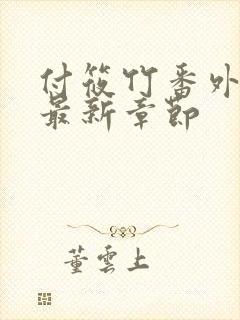 付筱竹番外
最新章节
董雲上